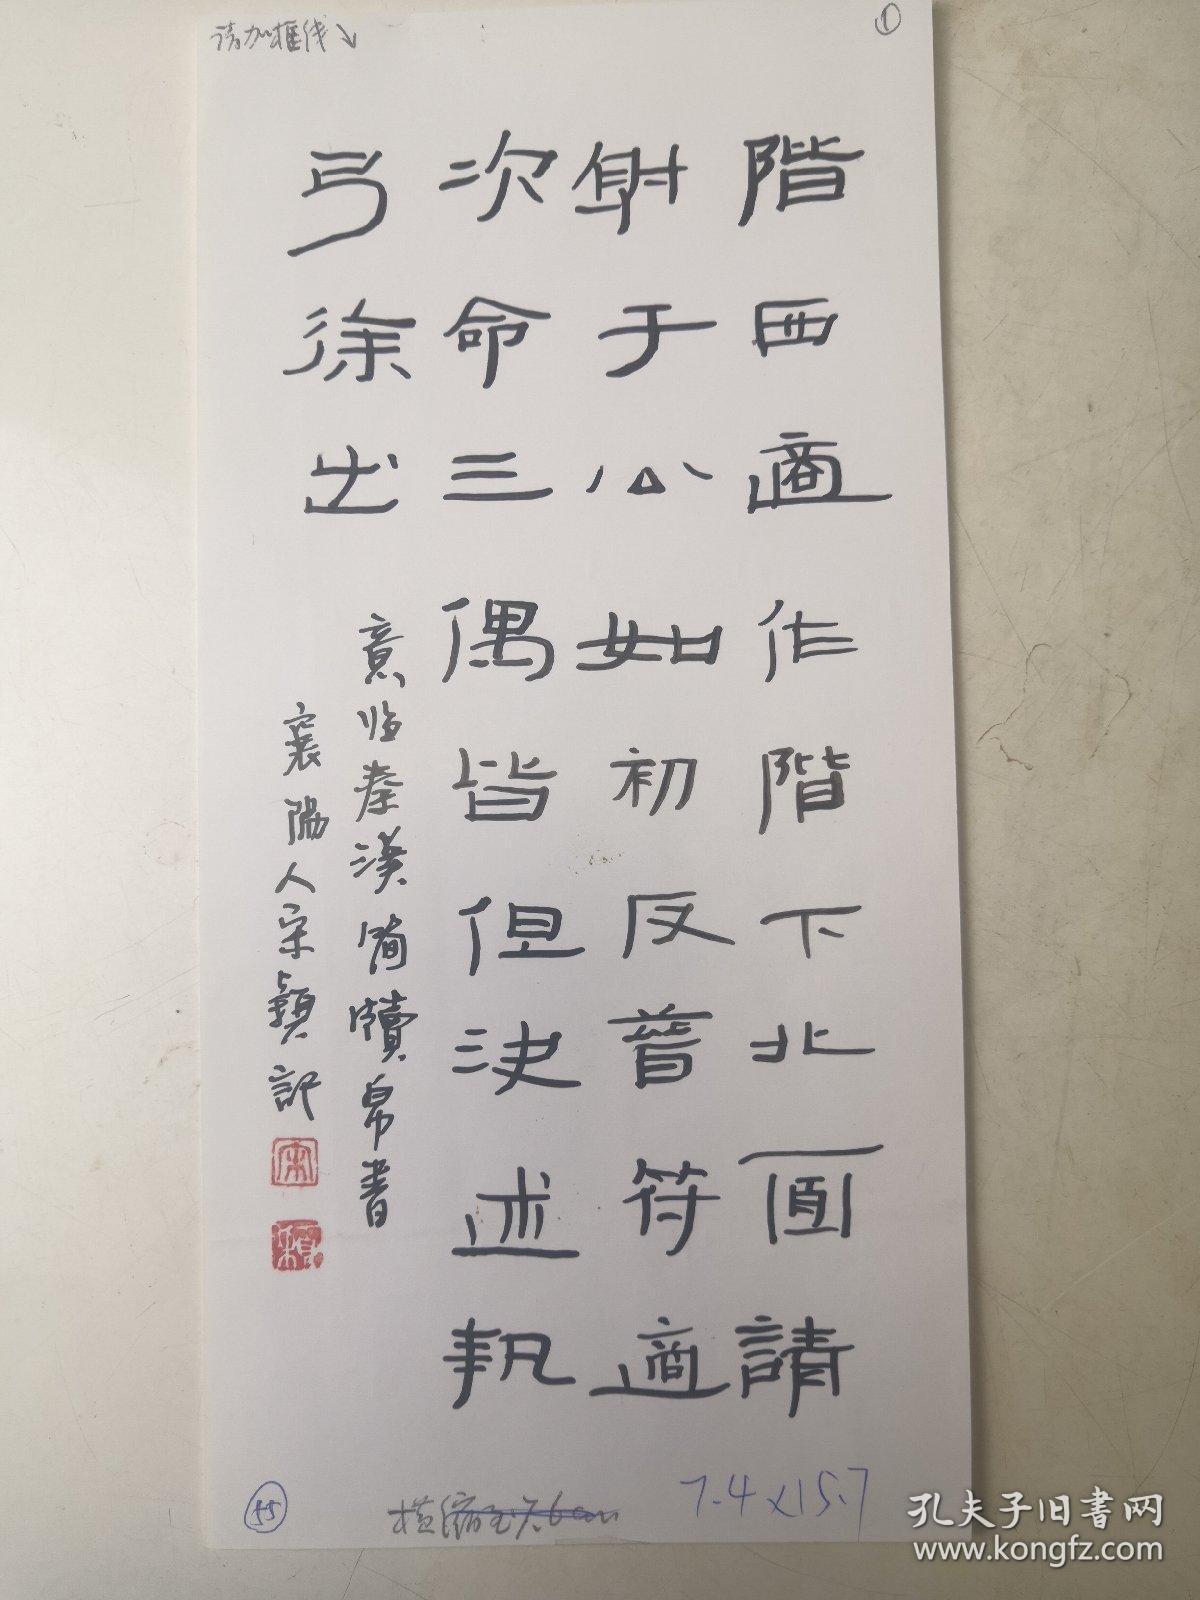 请加框线↘
①
階西適作階下北面請
射于公如初反普符適
次命三偶皆但決述執
弓徐出
意临秦漢简牘帛書
襄陽人宋穎記
宋
55
横缩至7.6cm
7.4×15.7
孔夫子旧书网
www.kongfz.com